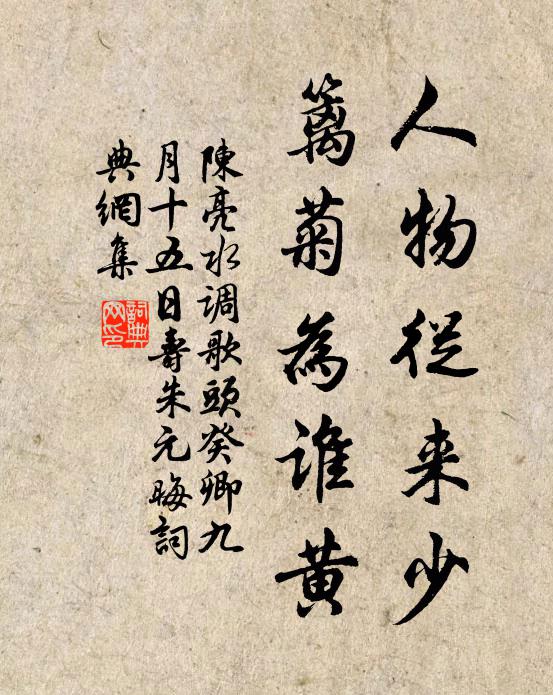 人物從来少
籬菊為誰黄
陳亮水调歌頭癸卿九
月十五日壽朱元晦詞
典網集
詞典网印